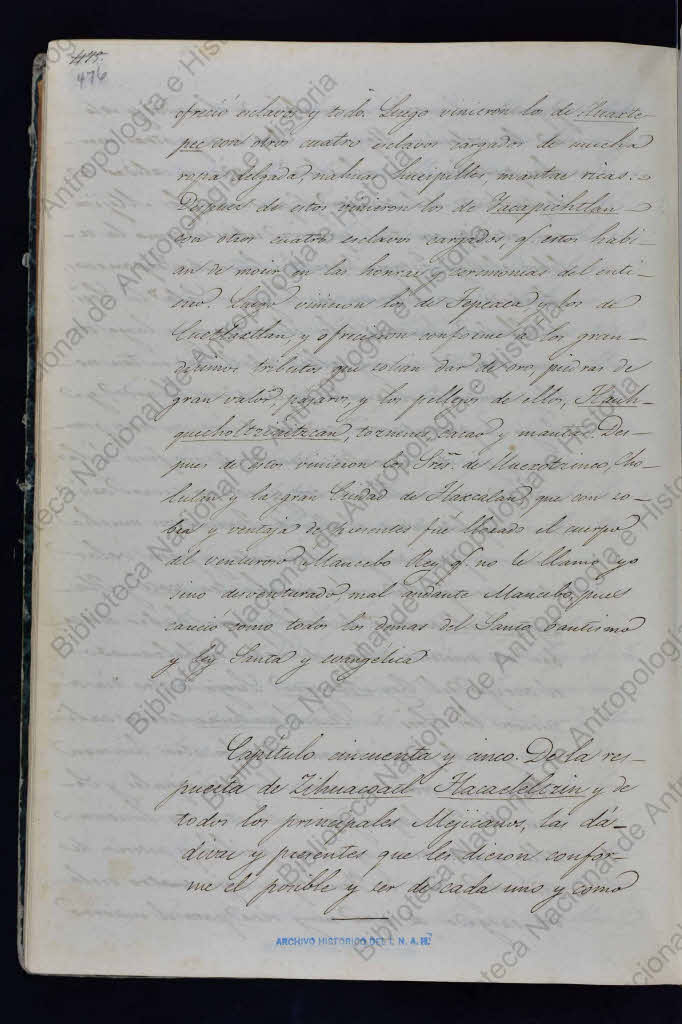 475.
476
ofreció esclavos y todo. Luego vinieron los de Huaxte-
pec con otros cuatro esclavos cargados de mucha
ropa delgada, nahuas hueipilles, mantas ricas.
Despues de estos vinieron los de Yacapichtlan
con otros cuatro esclavos cargados, q.e estos habi-
an de morir en las honras y ceremonias del enti-
erro. Luego vinieron los de Tepeaca y los de
Cuetlaxtlan, y ofrecieron conforme a los gran-
disimos tributos que solian dar de oro, piedras de
gran valor, pajaros, y los pellejos de ellos,
quechol tzinitzcan, cacao y mantas. Des-
pues de estos vinieron los Sres. de Huexotzinco, Cho-
lulan y la gran Ciudad de Tlaxcalan, que con so-
bra y ventaja de presentes fue llorado el cuerpo
del venturoso Mancebo Rey q.e no le llamo yo
sino desventurado, mal andante Mancebo, pues
careció como todos los demas del Santo bautismo
y ley Santa y evangelica
Capítulo cincuenta y cinco. De la res-
puesta de Zihuacoatl Tlacaeleltzin y de
todos los principales Mejicanos, las dá-
divas y presentes que les dieron confor-
me el posible y ser de cada uno y como
ARCHIVO HISTORICO DEL I. N. A. H.
Biblioteca Nacional de Antropología e Historia